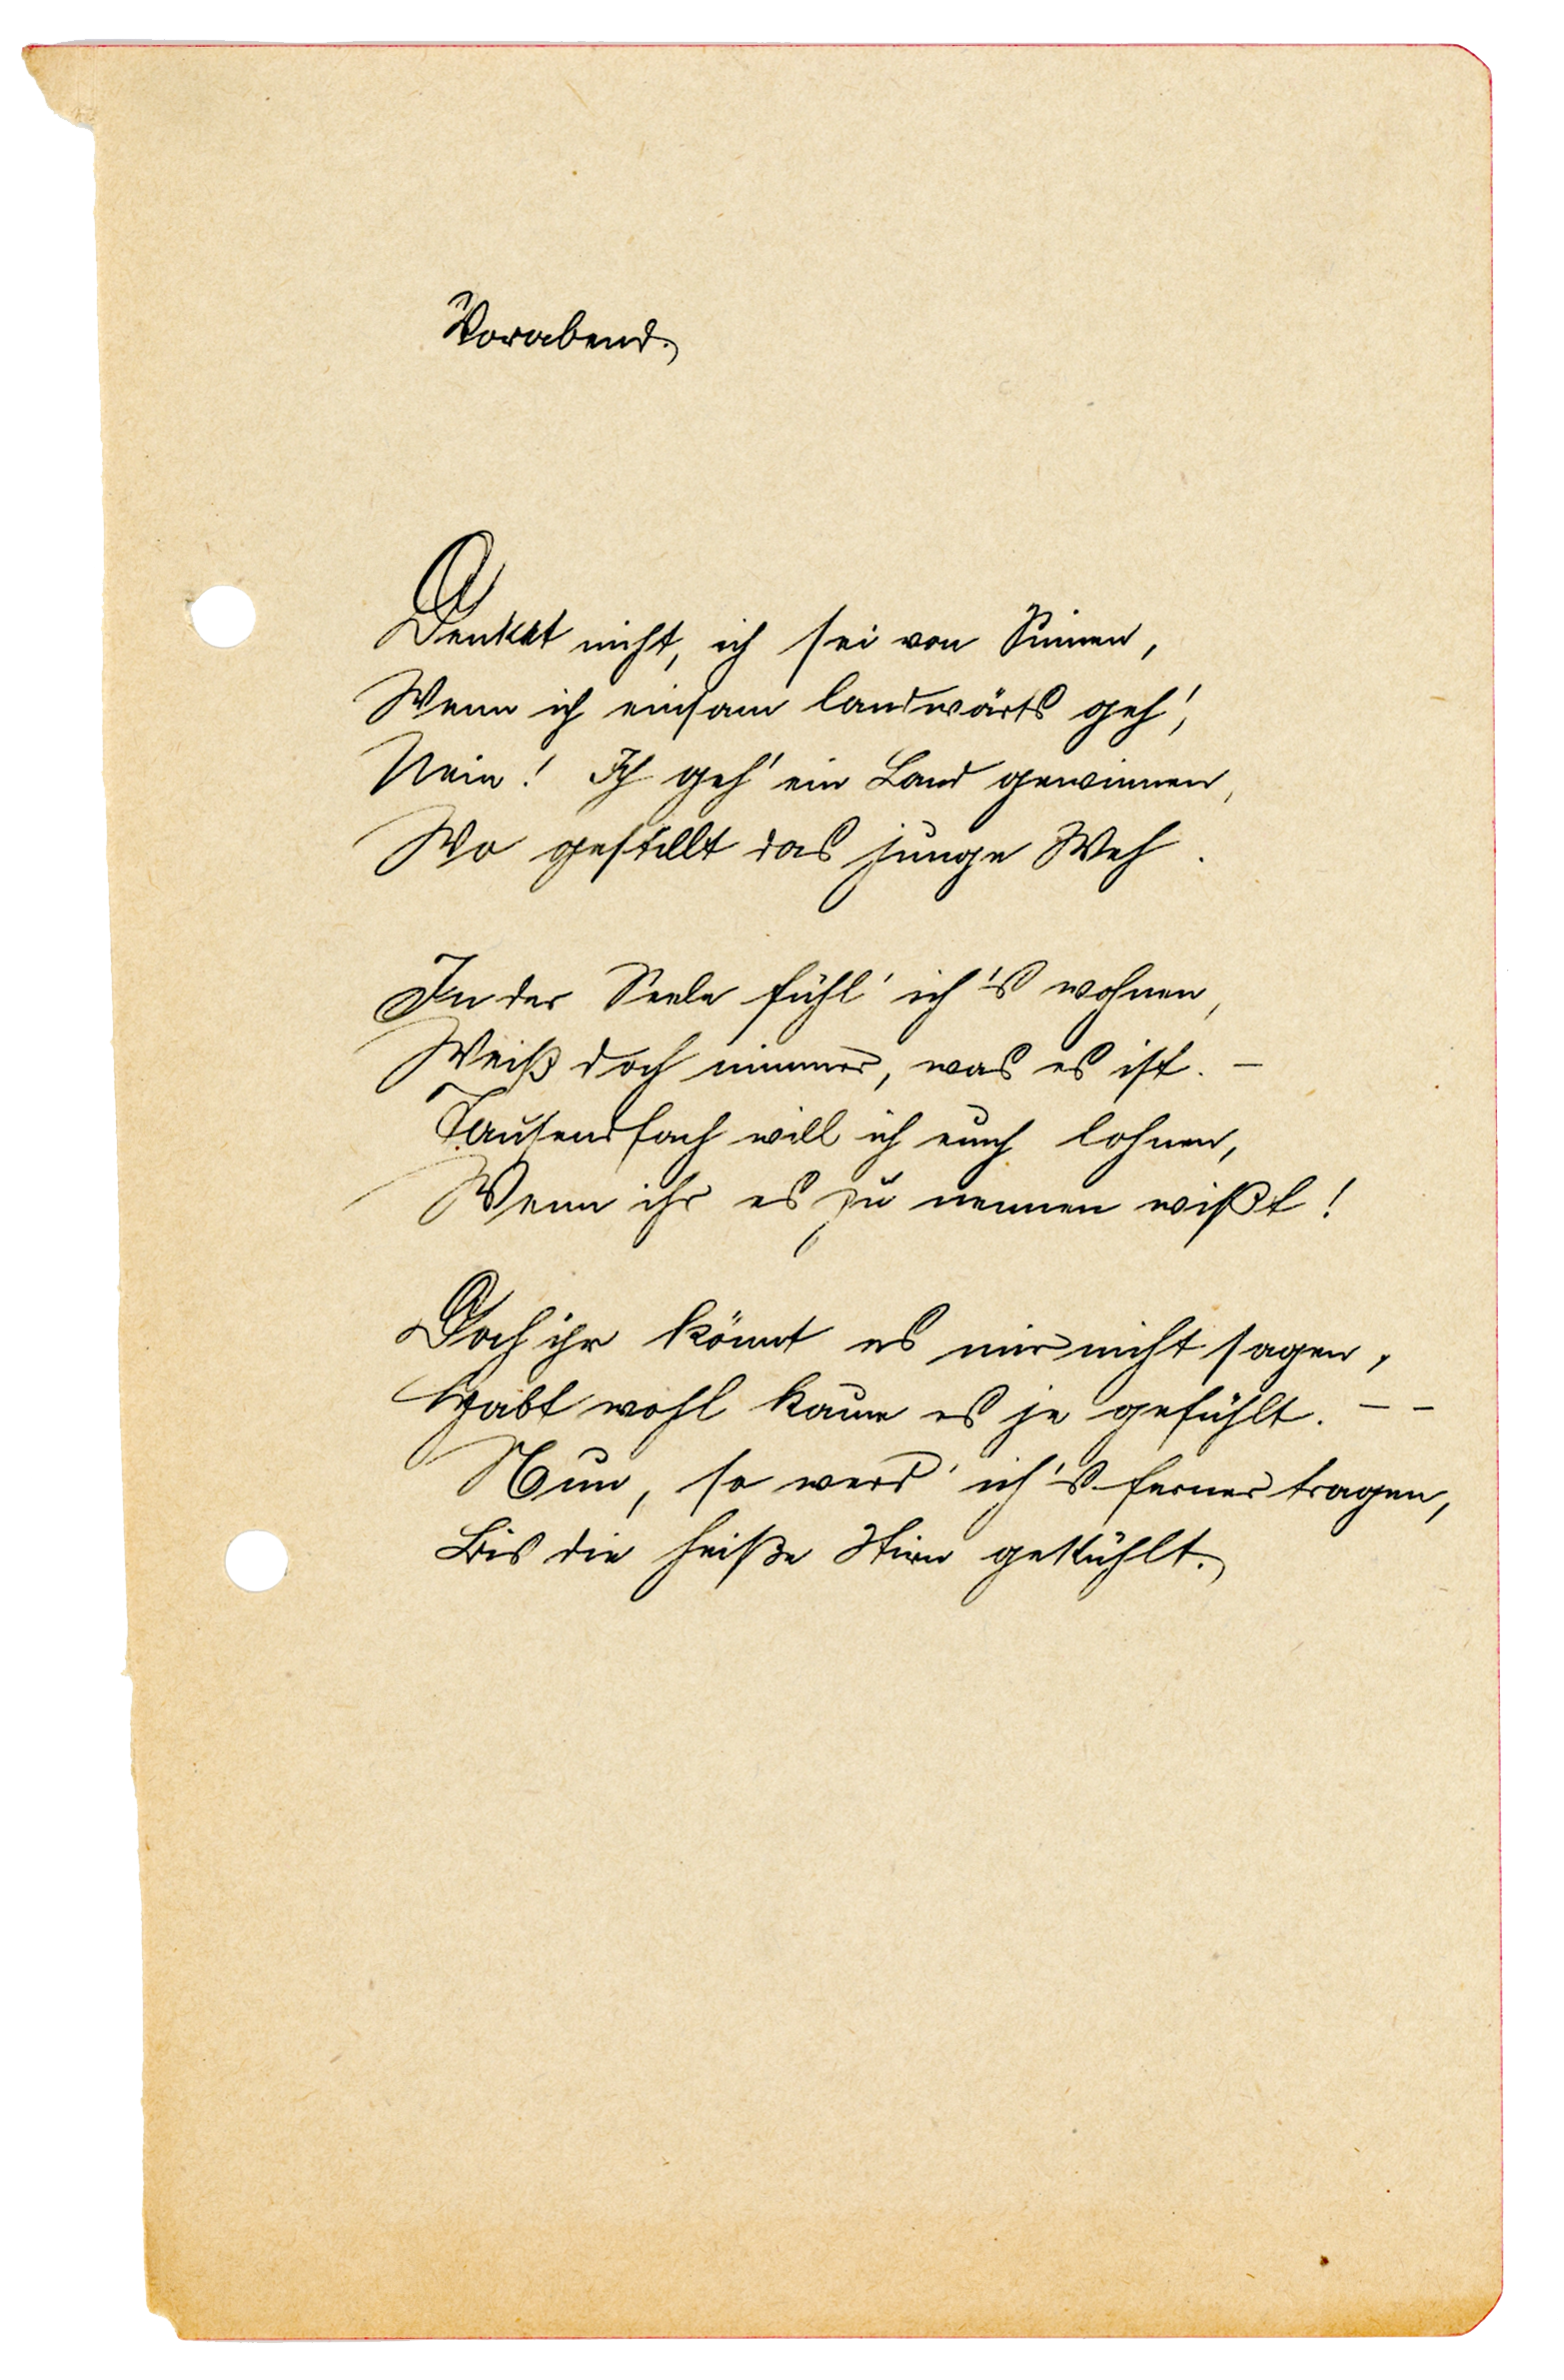 Vorabend.
Denket nicht, ich sei von Sinnen,
Wenn ich einsam landwärts geh',
Nein! Ich geh' ein Land gewinnen,
Wo gestillt das junge Weh.
In der Seele fühl' ich's wohnen,
Weiß doch nimmer, was es ist. –
Tausendfach will ich euch lohnen,
Wenn ihr es zu nennen wißt!
Doch ihr könnt es mir nicht sagen,
Habt wohl kaum es je gefühlt. – –
Nun, so werd' ich's ferner tragen,
Bis die heiße Stirn gekühlt.